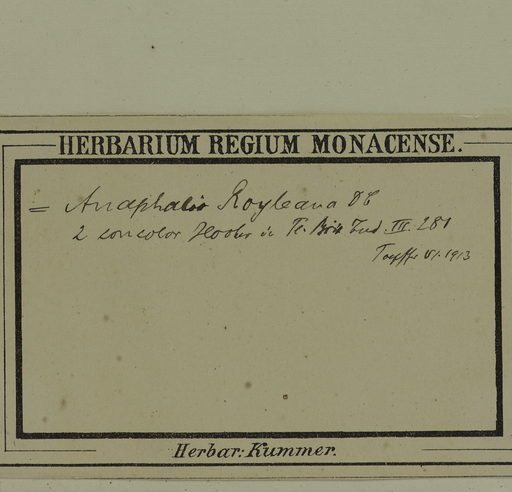 HERBARIUM REGIUM MONACENSE.
= Anaphalis Royleana DC
2 concolor Hooker in Fl. Brit Ind. III. 281
VI. 1913
Herbar: Kummer.